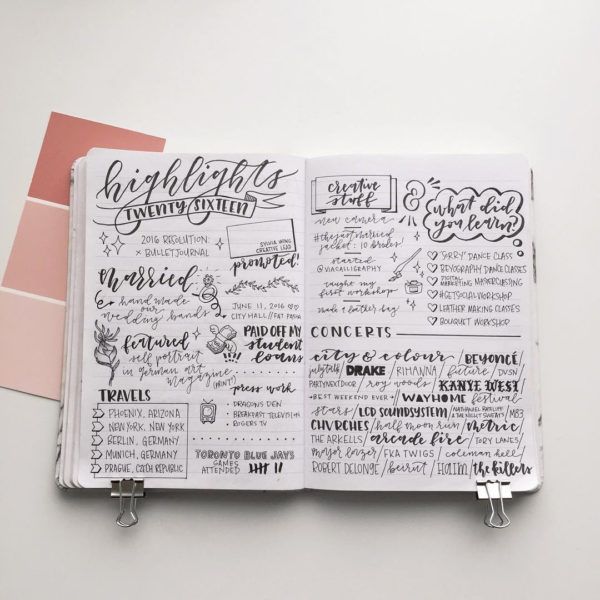 highlights
TWENTY SIXTEEN
2016 RESOLUTION:
× BULLETJOURNAL
SYLVIA WONG
CREATIVE LEAD
promoted!
married
hand made our
wedding bands
JUNE 11, 2016 ♡♡
CITY HALL // FAT PASHA
featured
self portrait
in german art
magazine
(PRINT)
PAID OFF MY
student
loans
press work
• DRAGONS DEN
• BREAKFAST TELEVISION
• ROGERS TV
TRAVELS
PHOENIX, ARIZONA
NEW YORK, NEW YORK
BERLIN, GERMANY
MUNICH, GERMANY
PRAGUE, CZECH REPUBLIC
TORONTO BLUE JAYS
GAMES
ATTENDED
creative
stuff
&
what did
you learn?
new camera
#thejustmarried
jacket : 10 brides!
started
@VIACALLIGRAPHY
taught my
first workshop
made a leather bag
♡ 'SORRY' DANCE CLASS
♡ BEYOGRAPHY DANCE CLASSES
♡ DIGITAL
MARKETING
♡ #GETSOCIALWORKSHOP
♡ LEATHER MAKING CLASSES
♡ BOUQUET WORKSHOP
CONCERTS
city & colour / BEYONCÉ /
july talk / DRAKE / RIHANNA / future / DVSN
PARTYNEXTDOOR / roy woods / KANYE WEST
*BEST WEEKEND EVER* WAYHOME festival
stars / LCD SOUNDSYSTEM / NATHANIEL RATELIFF & THE NIGHT SWEATS / M83
CHVRCHES / half moon run / metric /
THE ARKELLS / arcade fire / TORY LANES /
major lazer / FKA TWIGS / coleman hell /
ROBERT DELONGE / beirut / HALIM / the killers